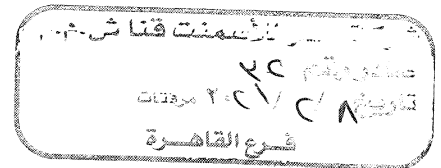 شركة مصر للأسمنت قنا ش.م.م.
صادر رقم
تاريخ ٨ / ٢ / مرفقات
فرع القاهرة